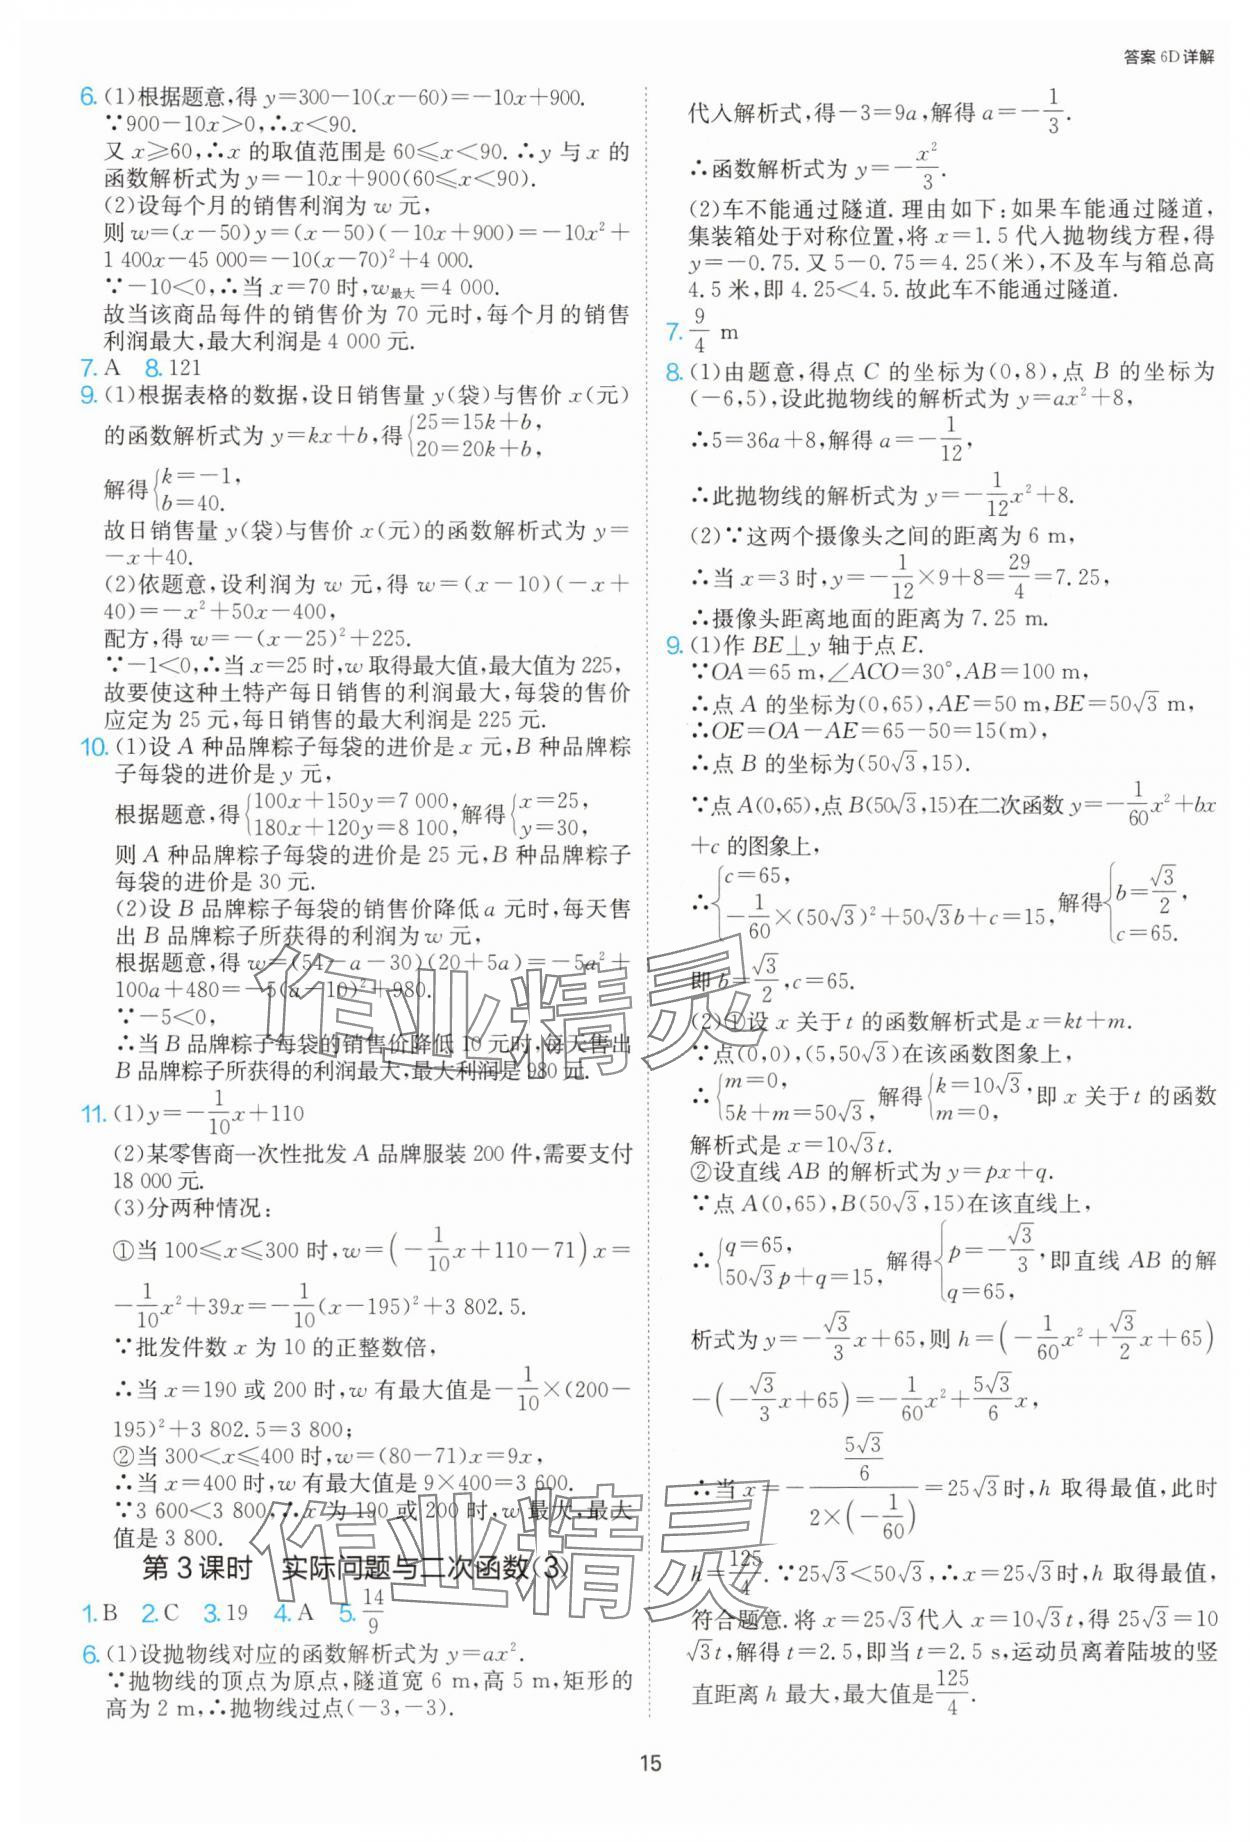 答案 6D详解
6. (1)根据题意,得 y=300-10(x-60)=-10x+900.
∵900-10x>0,∴x<90.
又 x≥60,∴x 的取值范围是 60≤x<90.∴y 与 x 的
函数解析式为 y=-10x+900(60≤x<90).
(2)设每个月的销售利润为 w 元,
则 w=(x-50)y=(x-50)(-10x+900)=-10x²+
1 400x-45 000=-10(x-70)²+4 000.
∵-10<0,∴当 x=70 时,w最大=4 000.
故当该商品每件的销售价为 70 元时,每个月的销售
利润最大,最大利润是 4 000 元.
7. A 8. 121
9. (1)根据表格的数据,设日销售量 y(袋)与售价 x(元)
的函数解析式为 y=kx+b,得{25=15k+b, 20=20k+b,
解得{k=-1, b=40.
故日销售量 y(袋)与售价 x(元)的函数解析式为 y=
-x+40.
(2)依题意,设利润为 w 元,得 w=(x-10)(-x+
40)=-x²+50x-400,
配方,得 w=-(x-25)²+225.
∵-1<0,∴当 x=25 时,w 取得最大值,最大值为 225,
故要使这种土特产每日销售的利润最大,每袋的售价
应定为 25 元,每日销售的最大利润是 225 元.
10. (1)设 A 种品牌粽子每袋的进价是 x 元,B 种品牌粽
子每袋的进价是 y 元,
根据题意,得{100x+150y=7 000, 180x+120y=8 100,解得{x=25, y=30,
则 A 种品牌粽子每袋的进价是 25 元,B 种品牌粽子
每袋的进价是 30 元.
(2)设 B 品牌粽子每袋的销售价降低 a 元时,每天售
出 B 品牌粽子所获得的利润为 w 元,
根据题意,得 w=(54-a-30)(20+5a)=-5a²+
100a+480=-5(a-10)²+980.
∵-5<0,
∴当 B 品牌粽子每袋的销售价降低 10 元时,每天售出
B 品牌粽子所获得的利润最大,最大利润是 980 元.
11. (1)y=-1/10x+110
(2)某零售商一次性批发 A 品牌服装 200 件,需要支付
18 000 元.
(3)分两种情况:
①当 100≤x≤300 时,w=(-1/10x+110-71)x=
-1/10x²+39x=-1/10(x-195)²+3 802.5.
∵批发件数 x 为 10 的正整数倍,
∴当 x=190 或 200 时,w 有最大值是-1/10×(200-
195)²+3 802.5=3 800;
②当 300<x≤400 时,w=(80-71)x=9x,
∴当 x=400 时,w 有最大值是 9×400=3 600.
∵3 600<3 800,∴x 为 190 或 200 时,w 最大,最大
值是 3 800.
第 3 课时 实际问题与二次函数(3)
1. B 2. C 3. 19 4. A 5. 14/9
6. (1)设抛物线对应的函数解析式为 y=ax².
∵抛物线的顶点为原点,隧道宽 6 m,高 5 m,矩形的
高为 2 m,∴抛物线过点(-3,-3).
代入解析式,得-3=9a,解得 a=-1/3.
∴函数解析式为 y=-x²/3.
(2)车不能通过隧道.理由如下:如果车能通过隧道,
集装箱处于对称位置,将 x=1.5 代入抛物线方程,得
y=-0.75.又 5-0.75=4.25(米),不及车与箱总高
4.5 米,即 4.25<4.5.故此车不能通过隧道.
7. 9/4 m
8. (1)由题意,得点 C 的坐标为(0,8),点 B 的坐标为
(-6,5),设此抛物线的解析式为 y=ax²+8,
∴5=36a+8,解得 a=-1/12,
∴此抛物线的解析式为 y=-1/12x²+8.
(2)∵这两个摄像头之间的距离为 6 m,
∴当 x=3 时,y=-1/12×9+8=29/4=7.25,
∴摄像头距离地面的距离为 7.25 m.
9. (1)作 BE⊥y 轴于点 E.
∵OA=65 m,∠ACO=30°,AB=100 m,
∴点 A 的坐标为(0,65),AE=50 m,BE=50√3 m,
∴OE=OA-AE=65-50=15(m),
∴点 B 的坐标为(50√3,15).
∵点 A(0,65),点 B(50√3,15)在二次函数 y=-1/60x²+bx
+c 的图象上,
∴{c=65, -1/60×(50√3)²+50√3b+c=15,解得{b=√3/2, c=65.
即 b=√3/2,c=65.
(2)①设 x 关于 t 的函数解析式是 x=kt+m.
∵点(0,0),(5,50√3)在该函数图象上,
∴{m=0, 5k+m=50√3,解得{k=10√3, m=0,即 x 关于 t 的函数
解析式是 x=10√3t.
②设直线 AB 的解析式为 y=px+q.
∵点 A(0,65),B(50√3,15)在该直线上,
∴{q=65, 50√3p+q=15,解得{p=-√3/3, q=65,即直线 AB 的解
析式为 y=-√3/3x+65,则 h=(-1/60x²+√3/2x+65)
-(-√3/3x+65)=-1/60x²+5√3/6x,
∴当 x=-(5√3/6)/(2×(-1/60))=25√3时,h 取得最值,此时
h=125/4.∵25√3<50√3,∴x=25√3时,h 取得最值,
符合题意.将 x=25√3代入 x=10√3t,得 25√3=10
√3t,解得 t=2.5,即当 t=2.5 s,运动员离着陆坡的竖
直距离 h 最大,最大值是125/4.
作业精灵
作业精灵
15